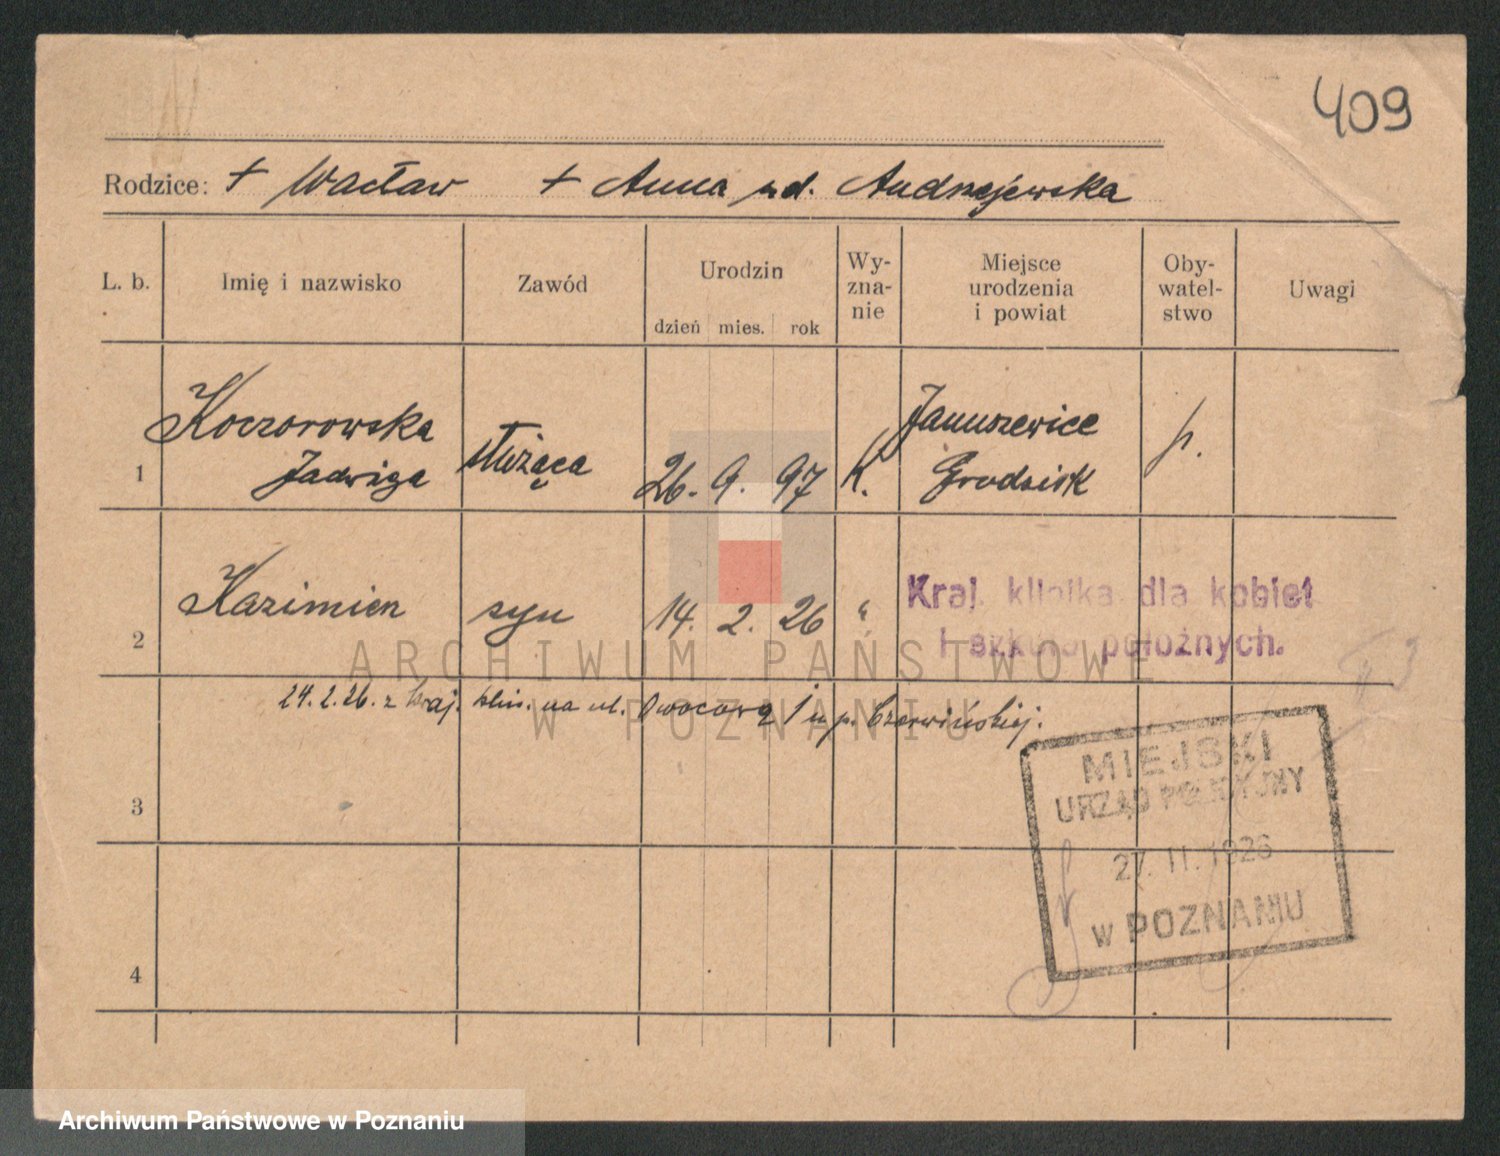 409
Rodzice: + Wacław + Anna zd. Andrzejewska
L. b. Imię i nazwisko Zawód Urodzin dzień mies. rok Wy-zna-nie Miejsce urodzenia i powiat Oby-watel-stwo Uwagi
Koczorowska Januszewice
1 Jadwiga służąca 26. 9. 97 K. Grodzisk p.
2 Kazimierz syn 14. 2. 26 "
Kraj. klinika dla kobiet
i szkoła położnych.
24.2.26. z kraj. klin. na ul. Owocową 1 u p. Czerwińskiej.
3
4
MIEJSKI
URZĄD POLICYJNY
27. II. 1926
w POZNANIU
ARCHIWUM PAŃSTWOWE
W POZNANIU
Archiwum Państwowe w Poznaniu